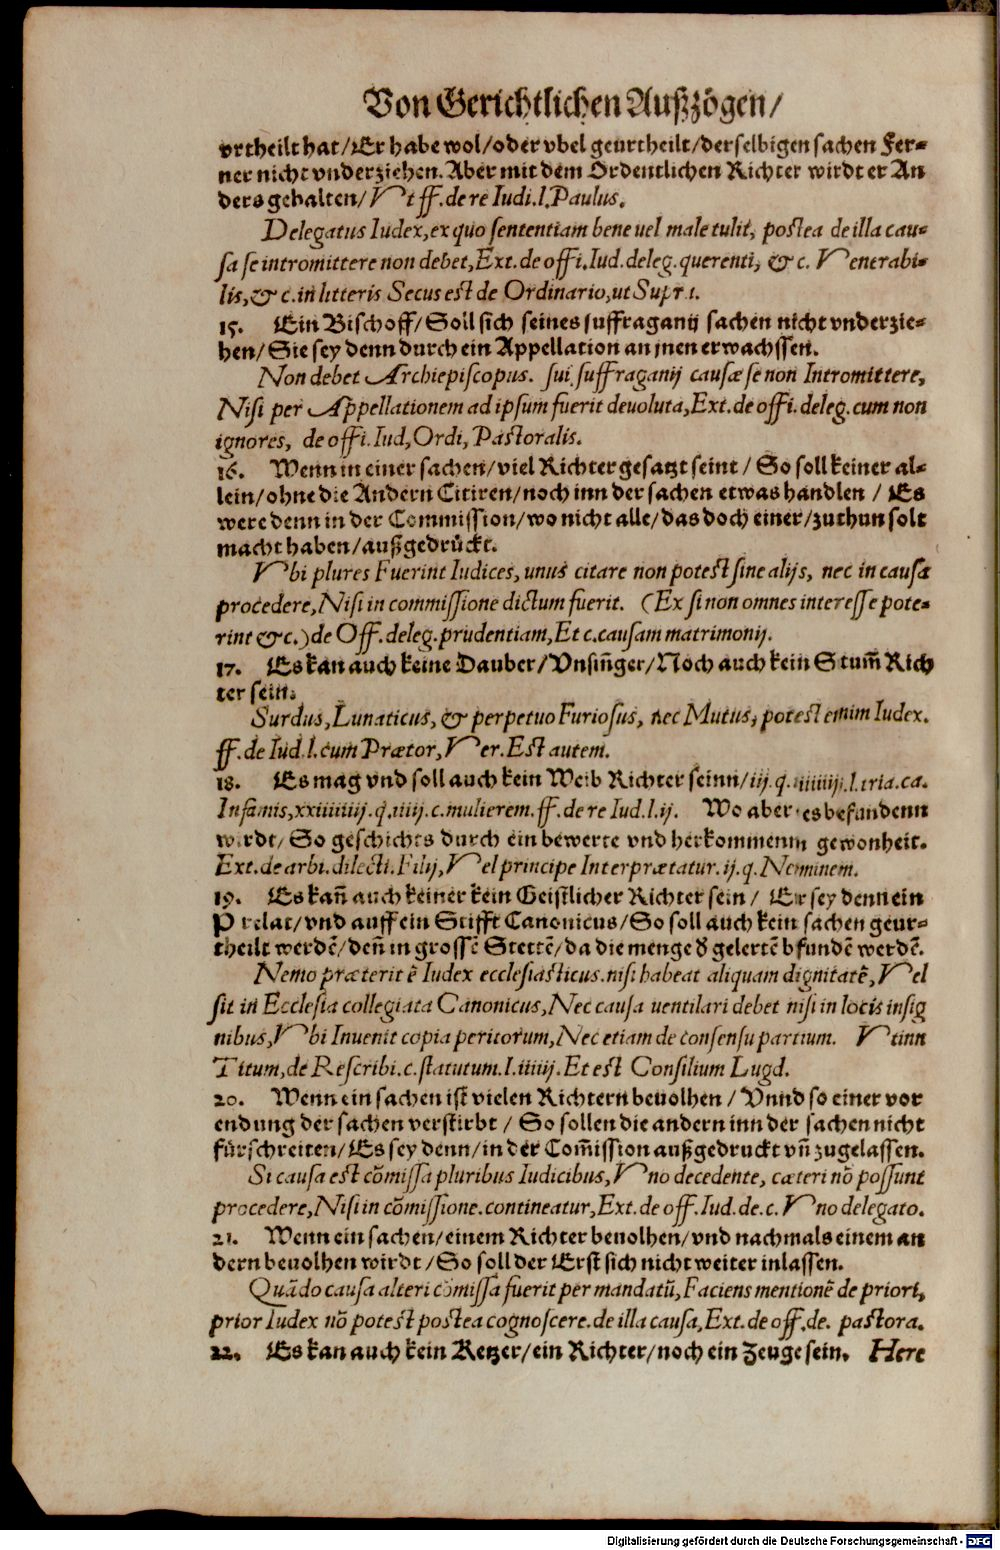 Von Gerichtlichen Außzögen/
vrtheilt hat/Er habe wol/oder vbel geurtheilt/derselbigen sachen Fer=
ner nicht vnderziehen. Aber mit dem Ordentlichen Richter wirdt er An
ders gehalten/Vt ff. de re Iudi. l. Paulus.
Delegatus Iudex, ex quo sententiam bene uel male tulit, postea de illa cau=
sa se intromittere non debet, Ext. de offi. Iud. deleg. querenti, & c. Venerabi=
lis, & c. in litteris Secus est de Ordinario, ut Supra.
15. Ein Bischoff/Soll sich seines suffraganij sachen nicht vnderzie=
hen/Sie sey denn durch ein Appellation an jnen erwachssen.
Non debet Archiepiscopus. sui suffraganij causæ se non Intromittere,
Nisi per Appellationem ad ipsum fuerit deuoluta, Ext. de offi. deleg. cum non
ignores, de offi. Iud, Ordi, Pastoralis.
16. Wenn in einer sachen/viel Richter gesatzt seint/So soll keiner al=
lein/ohne die Andern Citiren/noch inn der sachen etwas handlen / Es
were denn in der Commission/wo nicht alle/das doch einer/zuthun solt
macht haben/außgedrůckt.
Vbi plures Fuerint Iudices, unus citare non potest sine alijs, nec in causa
procedere, Nisi in commissione dictum fuerit. (Ex si non omnes interesse pote=
rint &c.) de Off. deleg. prudentiam, Et c. causam matrimonij.
17. Es kan auch keine Dauber/Vnsiñger/Noch auch kein Stum̃ Rich
ter sein.
Surdus, Lunaticus, & perpetuo Furiosus, nec Mutus, potest enim Iudex.
ff. de Iud. l. cum Prætor, Ver. Est autem.
18. Es mag vnd soll auch kein Weib Richter seinn/iij. q. iiiiiij. l. tria. ca.
Infamis, xxiiiiiiij. q. iiij. c. mulierem. ff. de re Iud. l. ij. Wo aber es befundenn
wirdt/So geschichts durch ein bewerte vnd herkommenn gewonheit.
Ext. de arbi. dilecti. Filij, Vel principe Interprætatur. ij. q. Neminem.
19. Es kañ auch keiner kein Geistlicher Richter sein/ Er sey denn ein
Prelat/vnd auff ein Stifft Canonicus/So soll auch kein sachen geur=
theilt werdē/deñ in grossē Stettē/da die menge d gelertē bfundē werdē.
Nemo præterit ē Iudex ecclesiasticus. nisi habeat aliquam dignitatē, Vel
sit in Ecclesia collegiata Canonicus, Nec causa uentilari debet nisi in locis insig
nibus, Vbi Inuenit copia peritorum, Nec etiam de consensu partium. Vt inn
Titum, de Rescribi. c. statutum. l. iiiiij. Et est Consilium Lugd.
20. Wenn ein sachen ist vielen Richtern beuolhen/Vnnd so einer vor
endung der sachen verstirbt/So sollen die andern inn der sachen nicht
fürschreiten/Es sey denn/in der Com̃ission außgedruckt vñ zugelassen.
Si causa est cōmissa pluribus Iudicibus, Vno decedente, cæteri nō possunt
procedere, Nisi in cōmissione. contineatur, Ext. de off. Iud. de. c. Vno delegato.
21. Wenn ein sachen/einem Richter beuolhen/vnd nachmals einem an
dern beuolhen wirdt/So soll der Erst sich nicht weiter inlassen.
Quādo causa alteri cōmissa fuerit per mandatū, Faciens mentionē de priori,
prior Iudex nō potest postea cognoscere. de illa causa, Ext. de off. de. pastora.
22. Es kan auch kein Ketzer/ein Richter/noch ein Zeuge sein. Here
Digitalisierung gefördert durch die Deutsche Forschungsgemeinschaft - DFG